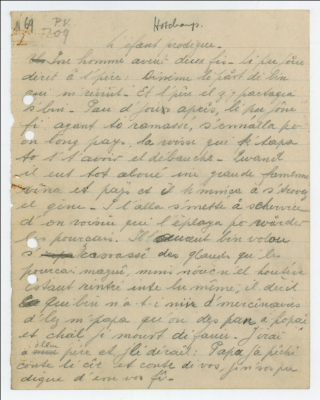 N 69 P.V.
2 7209
Hotchamps.
L'éfant prodigue.
Inn homme aveut deux fis. li pu jône
derit à l'père: Dinéme lè pârt de bin
qui m'revint. Et l'père el z-y partagea
s'bin. Pau d'jours après, li pu jône
fi ayant to ramassé, s'ennalla po
on long pay. la voisu qui k'tapa
to s't'avoir et debauche. Quand
il eut tot aloué inn grande famenne
vêna et pays et il k'minça à s'trover
el gêne. I s'alla s'mette à schervice
d'on voisin qui l'éploya po wârder
les pourcais. Il aveut bin volou
s' rassassi des glands qu'les
pourcais magni, mais nouk n'el
Estant rintré inte lu même, il derit
qui bin n-a-t-i nin d'mercinaires
d'lez m'papa qui ont des pan à
et chal ji mourt di faim. J'irai
à père et j'li dirait: Papa j'a péchi
conte li cîr et conte di vos, j'n vos pu
digne d'em vos fi.